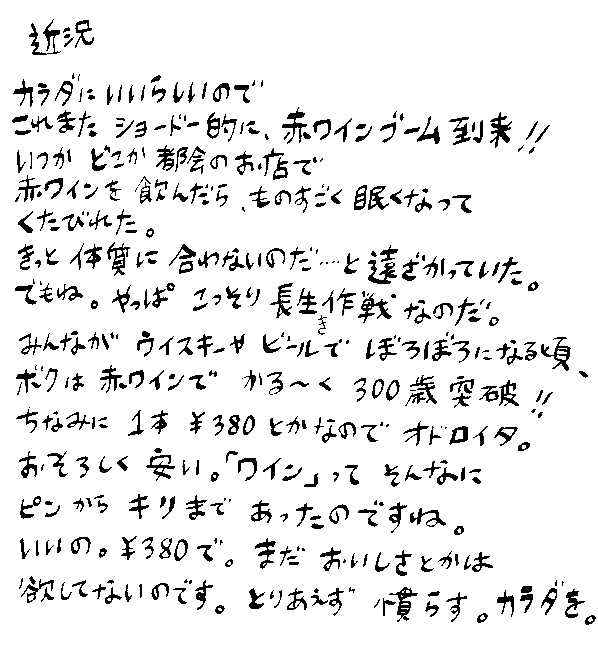 近況
カラダにいいらしいので
これまた ショードー的に、赤ワインブーム到来!!
いつか どこか 都会のお店で
赤ワインを 飲んだら、ものすごく 眠くなって
くたびれた。
きっと 体質に 合わないのだ…と 遠ざかっていた。
でもね。やっぱ こっそり 長生き作戦 なのだ。
みんなが ウイスキーや ビールで ぼろぼろになる頃、
ボクは 赤ワインで かる〜く 300歳 突破!!
ちなみに 1本 ¥380とかなので オドロイタ。
おそろしく 安い。「ワイン」って そんなに
ピンから キリまで あったのですね。
いいの。¥380で。まだ おいしさとかは
欲してないのです。とりあえず 慣らす。カラダを。